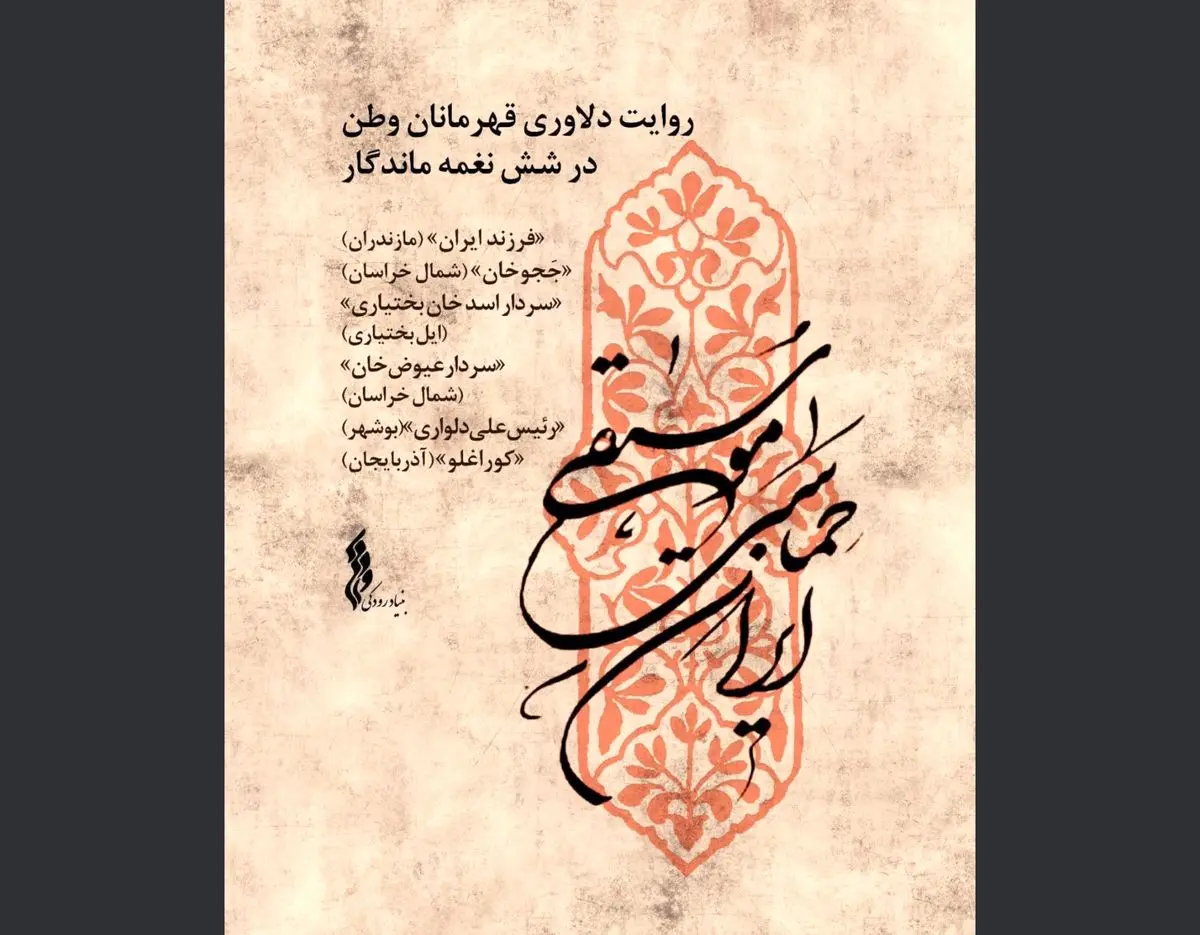 روایت دلاوری قهرمانان وطن
در شش نغمه ماندگار
«فرزند ایران» (مازندران)
«جَجوخان» (شمال خراسان)
«سردار اسد خان بختیاری»
(ایل بختیاری)
«سردار عیوض‌خان»
(شمال خراسان)
«رئیس‌علی دلواری» (بوشهر)
«کوراغلو» (آذربایجان)
موسیقی
حماسی
ایران
بنیاد رودکی